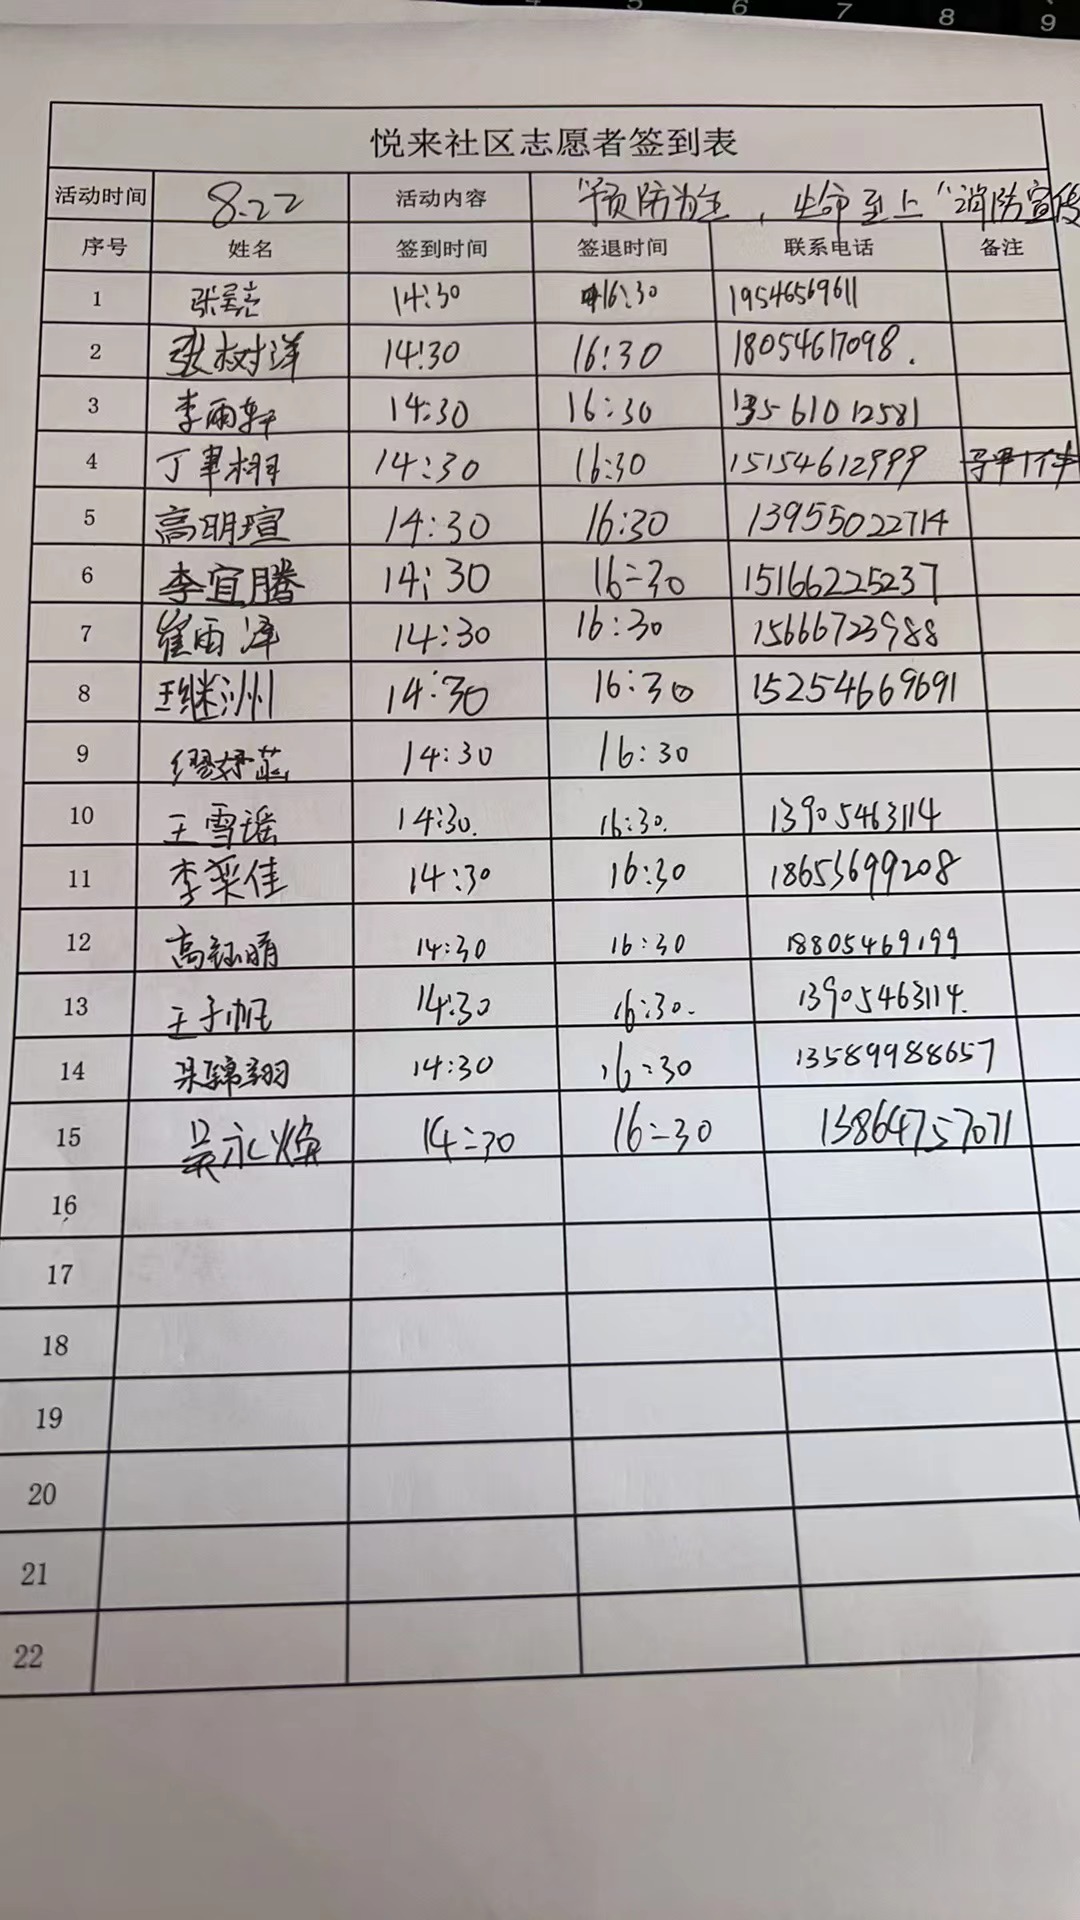 4 5 6 7 8 9
悦来社区志愿者签到表
活动时间 8.22 活动内容 “预防为主，生命至上”消防宣传
序号 姓名 签到时间 签退时间 联系电话 备注
1 张 14:30 16:30 19546569611
2 张树洋 14:30 16:30 18054617098.
3 李雨轩 14:30 16:30 13561012581
4 丁聿栩 14:30 16:30 15154612999
5 高明瑄 14:30 16:30 13955022714
6 李宜腾 14:30 16:30 15166225237
7 崔雨泽 14:30 16:30 15666723988
8 王继洲 14:30 16:30 15254669691
9 缪妤蕊 14:30 16:30
10 王雪瑶 14:30. 16:30. 13905463114
11 李采佳 14:30 16:30 18653699208
12 高钰晴 14:30 16:30 18805469199
13 王子帆 14:30 16:30. 13905463114.
14 梁锦翔 14:30 16:30 13589988657
15 吴永焕 14:30 16:30 13864757071
16
17
18
19
20
21
22